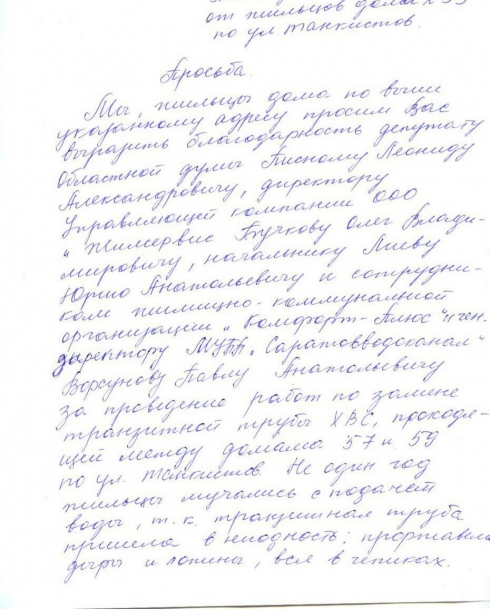 от жильцов дома № 59
по ул Танкистов.
Просьба.
Мы, жильцы дома по выше
указанному адресу просим Вас
выразить благодарность депутату
Областной думы Писному Леониду
Александровичу, директору
Управляющей компании ООО
"Жилсервис Бучкову Олег Влади-
мировичу, начальнику Лиеву
Юрию Анатольевичу и сотрудни-
кам жилищно-коммунальной
организации "Комфорт-Плюс" и ген.
директору МУПП "Саратовводоканал"
Ворсунову Павлу Анатольевичу
за проведение работ по замене
транзитной трубы ХВС, проходя-
щей между домами 57 и 59
по ул. Танкистов. Не один год
жильцы мучались с подачей
воды, т.к. транзитная труба
пришла в негодность: проржавела
дыры и латины, вся в чепиках.